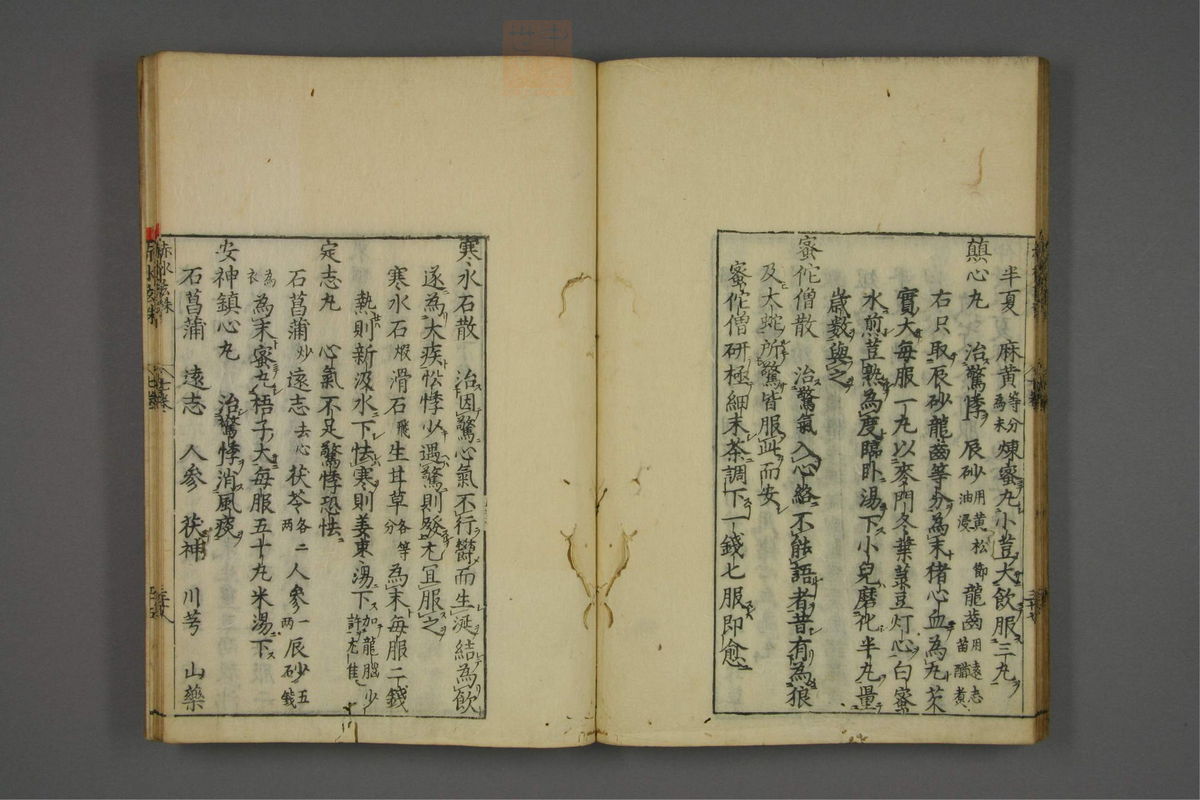 半夏　麻黄等分為末煉蜜丸小荳大飲服三丸
鎮心丸　治驚悸　辰砂用黄松節油浸　龍齒用遠志苗醋煮
右只取辰砂龍齒等分為末猪心血為丸芡
實大每服一丸以麥門冬葉菉豆灯心白蜜
水煎荳熟為度臨卧湯下小兒磨化半丸量
歳數與之
蜜佗僧散　治驚氣入心絡不能語者昔有為狼
及大蛇所驚皆服此而安
蜜佗僧研極細末茶調下一錢七服即愈
寒水石散　治因驚心氣不行鬱而生涎結為飲
遂為大疾忪悸少遇驚則發尤宜服之
寒水石煅滑石飛生甘草各等分為末每服二錢
熱則新汲水下怯寒則姜棗湯下加龍腦少許尤佳
定志丸　心氣不足驚悸恐怯
石菖蒲炒　遠志去心　茯苓各二兩　人參一兩　辰砂五錢為衣
為末蜜丸梧子大每服五十丸米湯下
安神鎮心丸　治驚悸消風痰
石菖蒲　遠志　人參　茯神　川芎　山藥
赤水玄珠